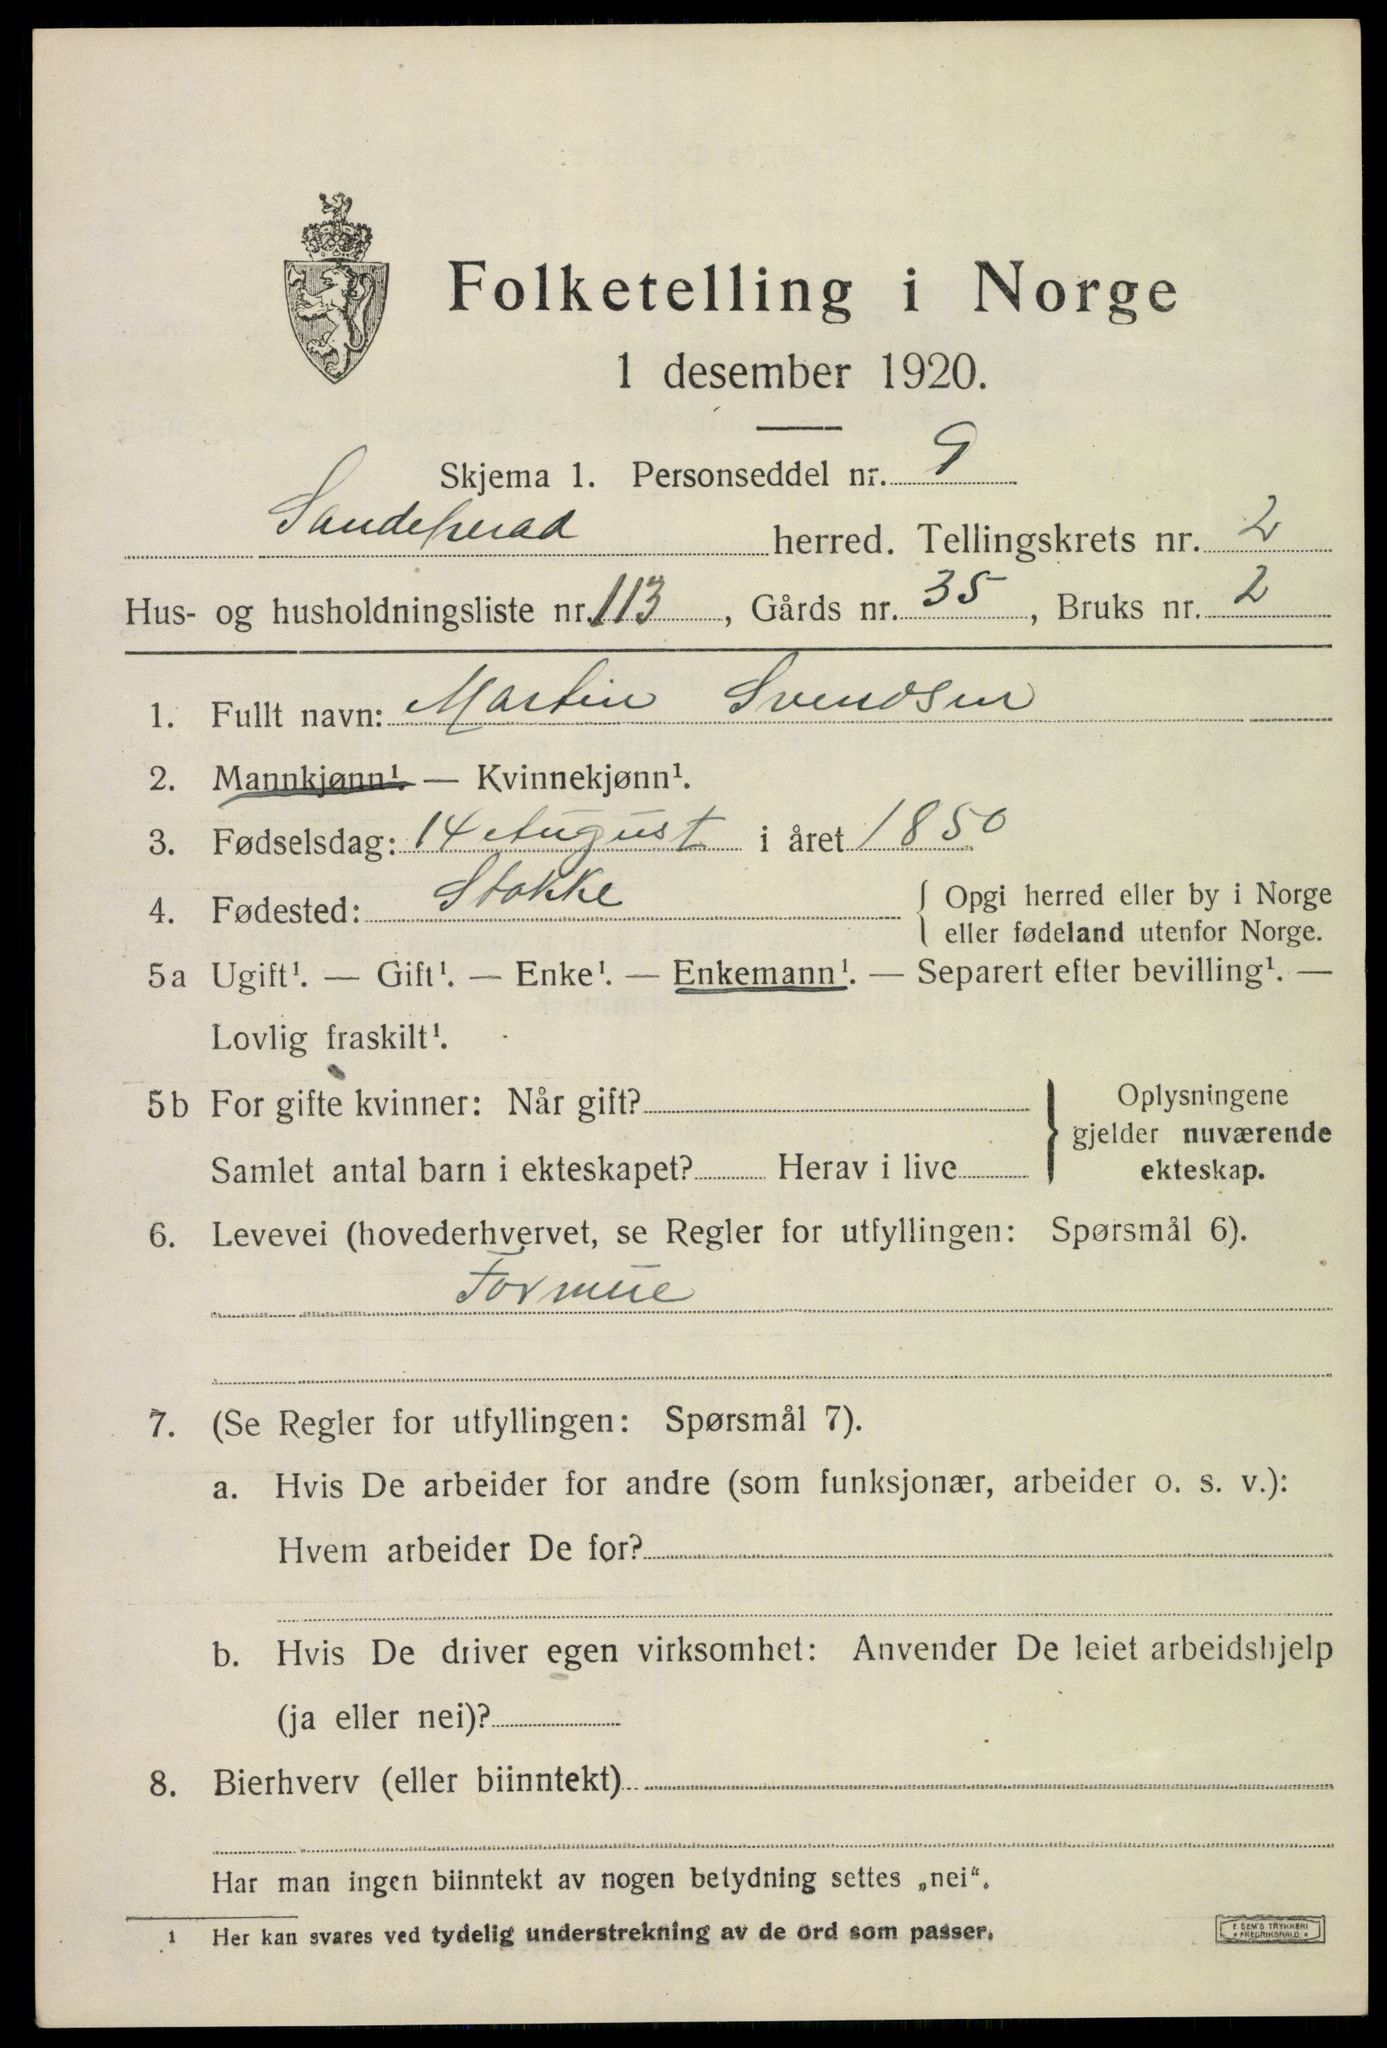 Folketelling i Norge
1 desember 1920.
Skjema 1. Personseddel nr. 9
Sandeherad herred. Tellingskrets nr. 2
Hus- og husholdningsliste nr. 113, Gårds nr. 35, Bruks nr. 2
1. Fullt navn: Martin Svendsen
2. Mannkjønn¹. — Kvinnekjønn¹.
3. Fødselsdag: 14 August i året 1850
4. Fødested: Stokke { Opgi herred eller by i Norge
eller fødeland utenfor Norge.
5a Ugift¹. — Gift¹. — Enke¹. — Enkemann¹. — Separert efter bevilling¹. —
Lovlig fraskilt¹.
5b For gifte kvinner: Når gift? } Oplysningene
gjelder nuværende
Samlet antal barn i ekteskapet? Herav i live ekteskap.
6. Levevei (hovederhvervet, se Regler for utfyllingen: Spørsmål 6).
Formue
7. (Se Regler for utfyllingen: Spørsmål 7).
a. Hvis De arbeider for andre (som funksjonær, arbeider o. s. v.):
Hvem arbeider De for?
b. Hvis De driver egen virksomhet: Anvender De leiet arbeidshjelp
(ja eller nei)?
8. Bierhverv (eller biinntekt)
Har man ingen biinntekt av nogen betydning settes „nei“.
1 Her kan svares ved tydelig understrekning av de ord som passer.
E SEM'S TRYKKERI
FREDRIKSHALD